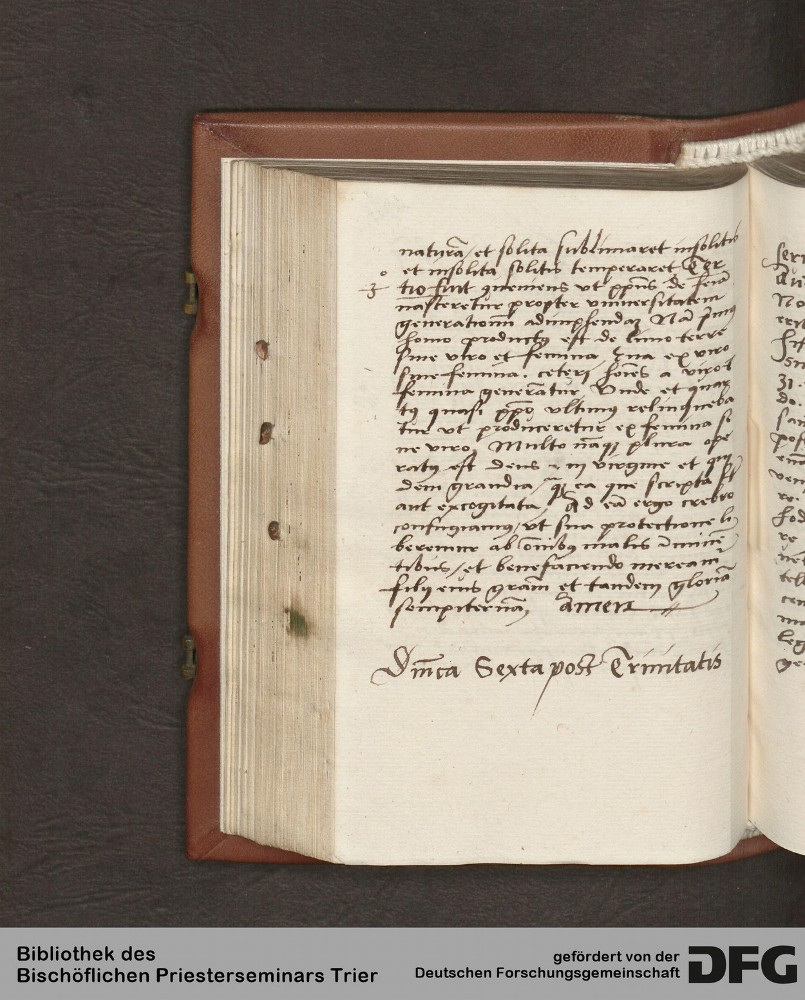 naturā, et solita sublimaret insolitis
et insolita solitis temperaret Ter
3°
tio fuit queniens ut ppūs de feīa
nasceretur propter universitatem
generationum adimplendaȝ Nā prim9
homo productus est de limo terre
sine viro et femina, Eva ex viro
sine femina. ceteri hoīes a viro et
femina generātur, Unde et quar
tus quasi ppo ultimus relinqueba
tur ut produceretur ex femina si
ne viro, Multo nāqȝ plura ope
ratus est deus in virgine et qui
dem grandia, quā ea que scripta st
aut excogitata, Ad eā ergo crebro
confugiamus, ut sua protectione li
beremur ab oīnibus malis īminē
tibus, et benefaciendo mereamr
filij eius grām et tandem gloriā
sempiternā, Amen
Dīnica Sexta post Trinitatis
Bibliothek des
Bischöflichen Priesterseminars Trier
gefördert von der
Deutschen Forschungsgemeinschaft
DFG